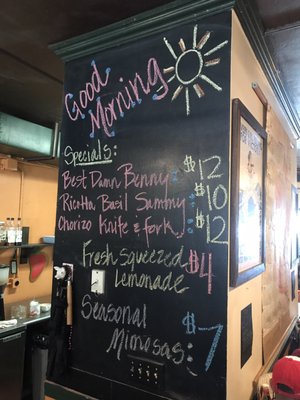 Good
Morning
Specials:
Best Damn Benny : $12
Ricotta Basil Sammy : $10
Chorizo Knife & fork : 12
Fresh Squeezed
Lemonade $4
Seasonal
Mimosas: $7